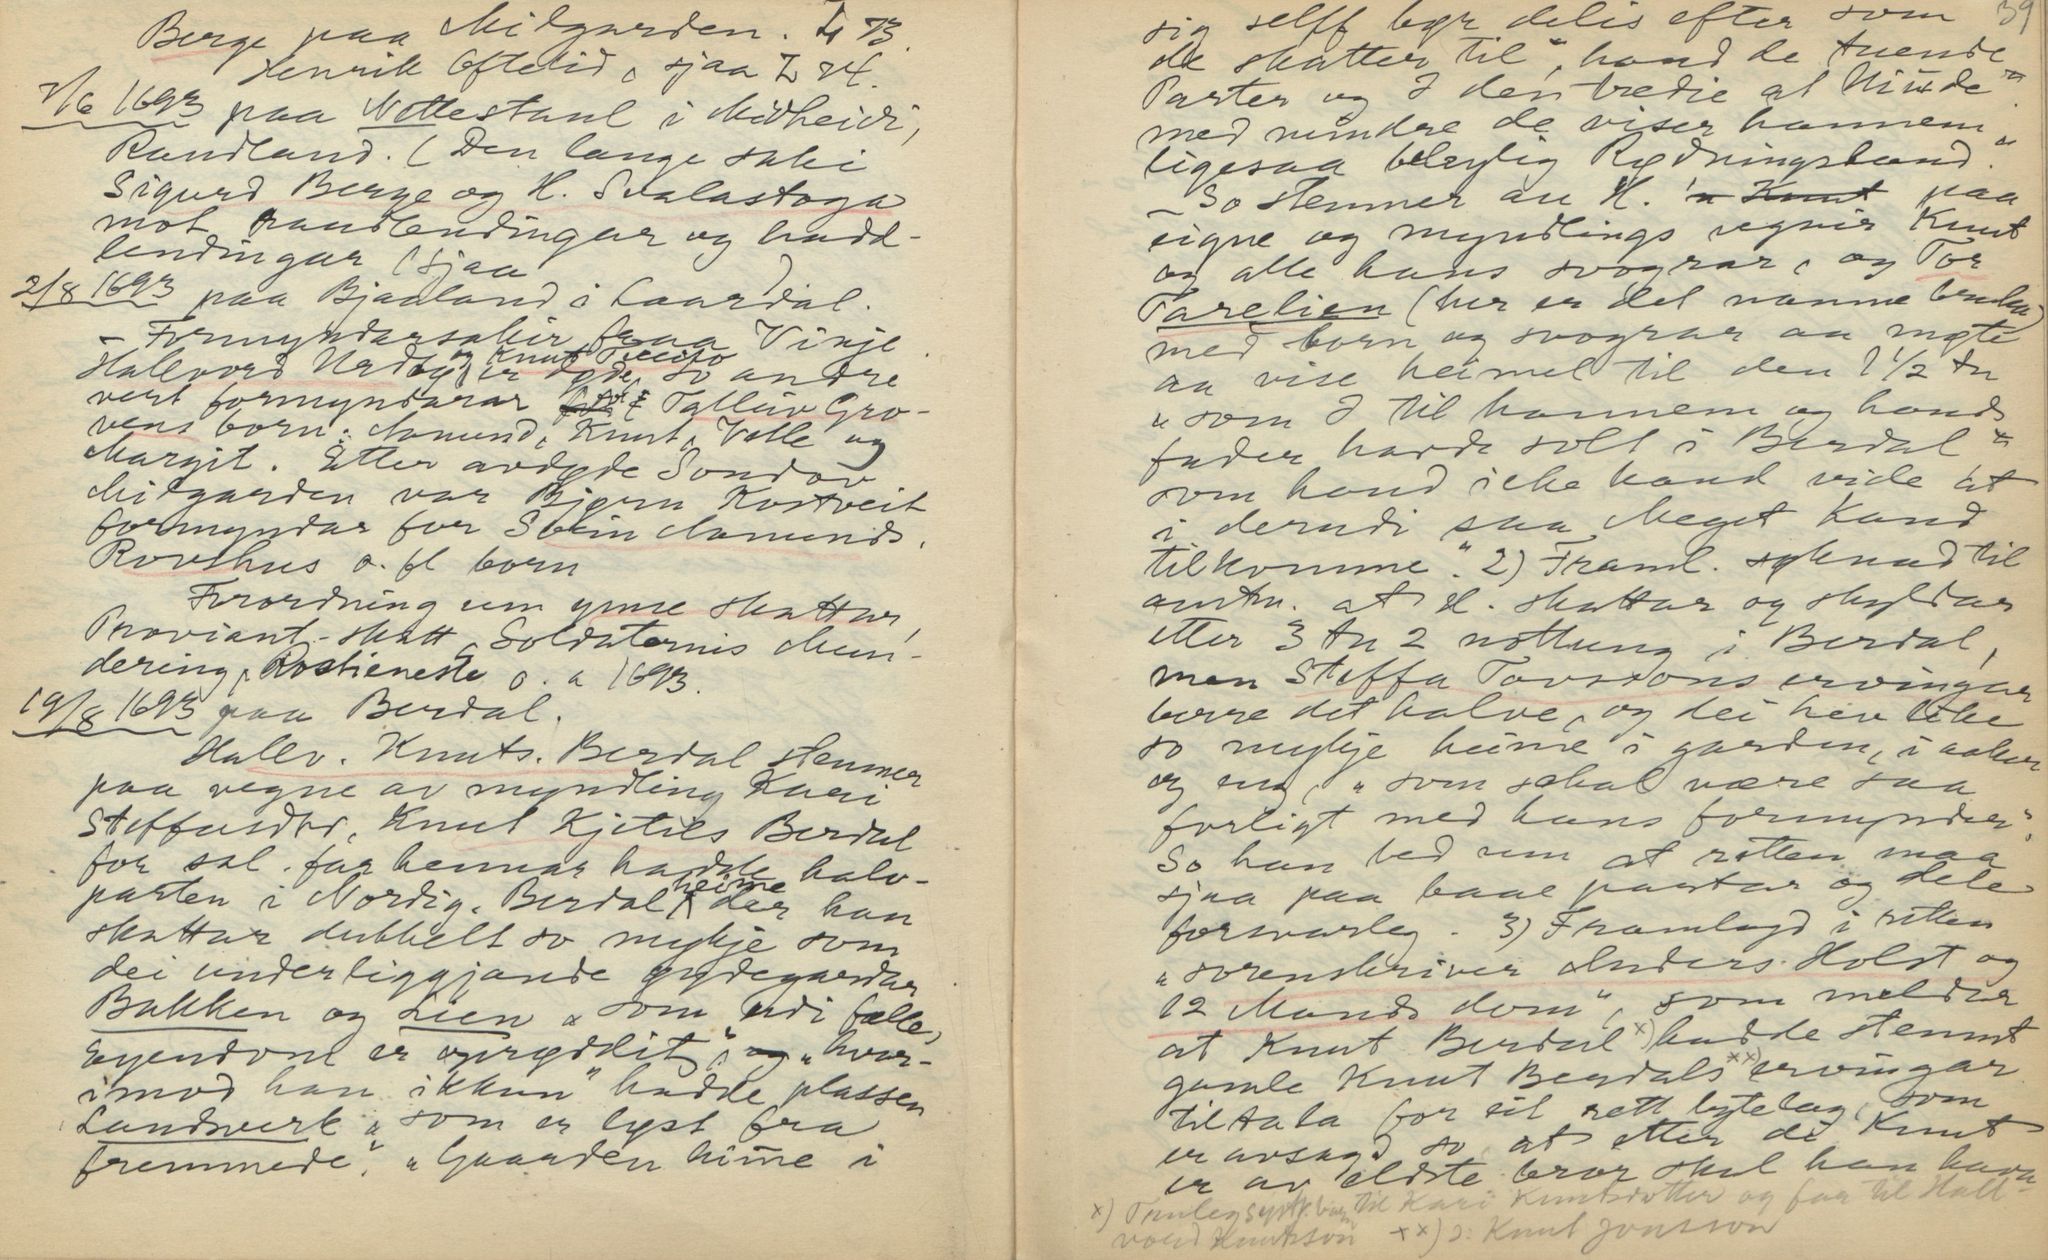 Berge paa Midgarden. L 73.
Henrik Oftelid, sjaa L 24.
7/6 1693 paa Nottestaul i Midheidi,
Raudland. (Den lange saki
Sigurd Berge og H. Svalastoga
mot raudlendingar og hadd-
lendingar (sjaa )
2/8 1693 paa Bjaaland i Laardal.
- Formyndarsakir fraa Vinje.
Hallvord Urdbø og Knut er døde so andre
vert formyndarar for Talleiv Gro-
vens born: Aamund, Knut, Volle og
Margit. Etter avdøde Sondov
Midgarden var Bjørn Kostveit
formyndar for Svein Aamunds.
Rovshus o. fl born
Forordning um ymse skattar,
Proviant-skatt, Soldaternis Mun-
dering, Rostieneste o. a 1693.
19/8 1693 paa Berdal.
Hallv. Knuts. Berdal stemner
paa vegne av myndling Kari
Steffensdtr, Knut Kjetils Berdal
for sal. far hennar hadde halv-
parten i Nordig. Berdal heime der han
skattar dubbelt so mykje som
dei underliggjande øydegardar
Bakken og Lien „som udi fælles
Eyendom er oprøddit", og „hvor-
imod han ikkun" hadde plassen
Landverk „som er lyst fra
fremmede". „Gaarden hime i
39
sig self bør delis efter som
de skatter til", hand de tuende
Parter og I den tredie at Niude"
med mindre de viser hannem
ligesaa belejlig Rødningsland."
So stemner au H. paa
eigne og myndlings vegnir Knut
og alle hans svograr, og Tor
Tarelien (her er det namne bruka)
med born og svograr aa møte
aa vise heimel til den 1 1/2 tn
„som I til hannem og hands
fader hafde solt i Berdal"
som hand icke kand vide at
i derudi saa Meget kand
tilkomme." 2) Framl. søknad til
amtm. at H. skattar og skyldar
etter 3 tn 2 nottung i Berdal,
men Steffa Tovsons ervingar
berre det halve, og dei hev ikke
so mykje heime i garden, i aaker
og eng, „som schal være saa
forligt med hans formynder".
So han bed um at retten maa
sjaa paa baae partar og dele
forsvarleg. 3) Framlagd i retten
„sorenskriver Anders Holst og
12 Mands dom", som meldar
at Knut Berdal x) hadde stemnt
gamle Knut Berdals xx) ervingar
til tala for eit rett bytelag, som
er avsagd so, at etter di Knut
er av eldste bror skal han hava
x) Truleg til Kari Knutsdotter og far til Hall-
vord Knutsson xx) ɔ: Knut Jonsson